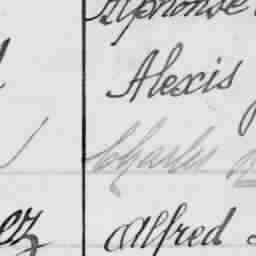 Alphonse
Alexis
Charles
ez Alfred